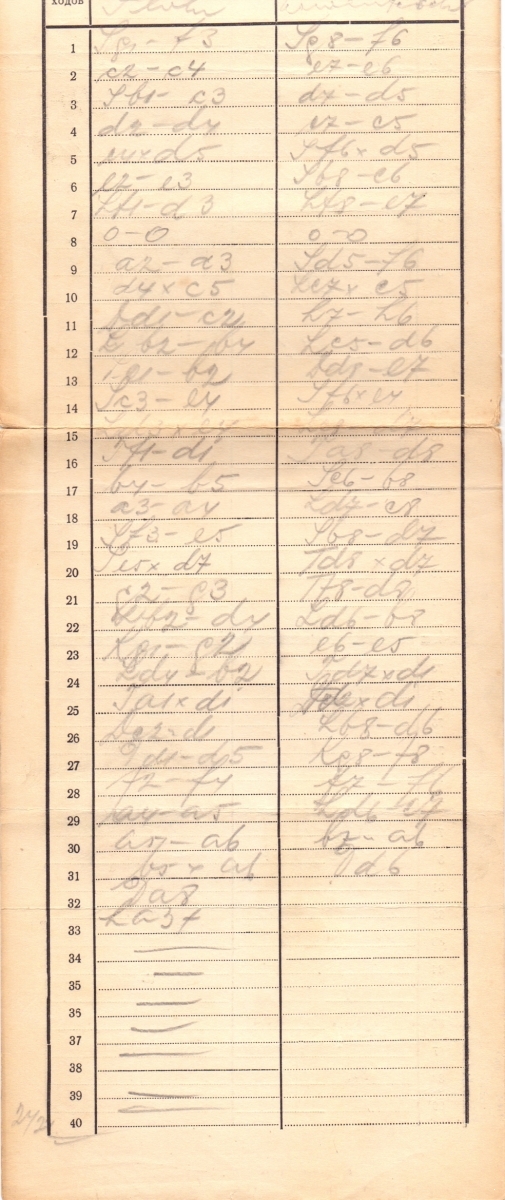 ходов
1 Sg1-f3 Sg8-f6
2 c2-c4 e7-e6
3 Sb1-c3 d7-d5
4 d2-d4 c7-c5
5 c4×d5 Sf6×d5
6 e2-e3 Sb8-c6
7 Lf1-d3 Lf8-e7
8 0-0 0-0
9 a2-a3 Sd5-f6
10 d4×c5 Le7×c5
11 Dd1-c2 h7-h6
12 b2-b4 Lc5-d6
13 Lc1-b2 Dd8-e7
14 Sc3-e4 Sf6×e4
15
16 Tf1-d1 Ta8-d8
17 b4-b5 Sc6-b8
18 a3-a4 Ld7-c8
19 Sf3-e5 Sb8-d7
20 Se5×d7 Td8×d7
21 g2-g3 Tf8-d8
22 Lb2-d4 Ld6-b8
23 Kg1-g2 e6-e5
24 Ld4-b2 Td7×d1
25 Ta1×d1 Td8×d1
26 d1 Lb8-d6
27 d1-d5 Kg8-f8
28 f2-f4 f7-f6
29 a4-a5
30 a5-a6 b7-a6
31 b5×a6 d6
32 a8
33 La3+
34
35
36
37
38
39
40